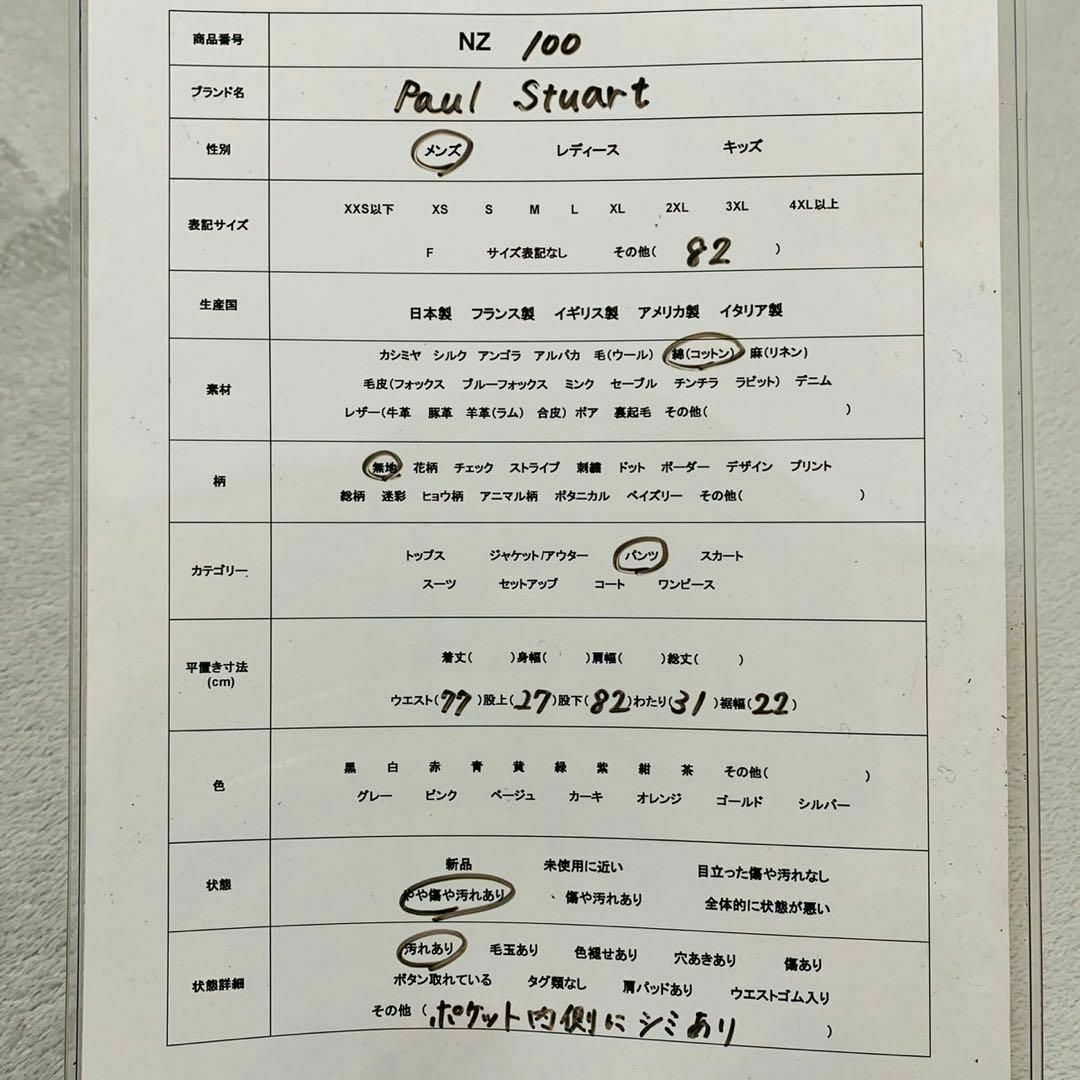 商品番号 NZ 100
ブランド名 Paul Stuart
性別 メンズ レディース キッズ
表記サイズ XXS以下 XS S M L XL 2XL 3XL 4XL以上
F サイズ表記なし その他( 82 )
生産国 日本製 フランス製 イギリス製 アメリカ製 イタリア製
素材 カシミヤ シルク アンゴラ アルパカ 毛(ウール) 綿(コットン) 麻(リネン)
毛皮(フォックス ブルーフォックス ミンク セーブル チンチラ ラビット) デニム
レザー(牛革 豚革 羊革(ラム) 合皮) ボア 裏起毛 その他( )
柄 無地 花柄 チェック ストライプ 刺繍 ドット ボーダー デザイン プリント
総柄 迷彩 ヒョウ柄 アニマル柄 ボタニカル ペイズリー その他( )
カテゴリー トップス ジャケット/アウター パンツ スカート
スーツ セットアップ コート ワンピース
平置き寸法
(cm)
着丈( )身幅( )肩幅( )総丈( )
ウエスト(77)股上(27)股下(82)わたり(31)裾幅(22)
色 黒 白 赤 青 黄 緑 紫 紺 茶 その他( )
グレー ピンク ベージュ カーキ オレンジ ゴールド シルバー
状態 新品 未使用に近い 目立った傷や汚れなし
やや傷や汚れあり 、傷や汚れあり 全体的に状態が悪い
状態詳細 汚れあり 毛玉あり 色褪せあり 穴あきあり 傷あり
ボタン取れている タグ類なし 肩パッドあり ウエストゴム入り
その他 ( ポケット内側にシミあり )